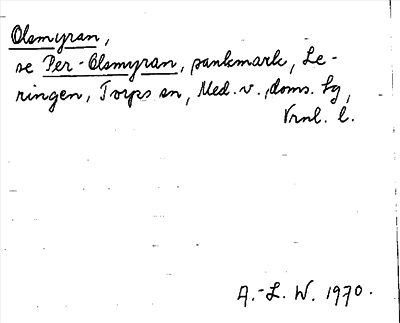 Olsmyran,
se Per-Olsmyran, sankmark, Le-
ringen, Torps sn, Med. v. , doms. hg,
Vrnl. l.
A.-L. W. 1970.